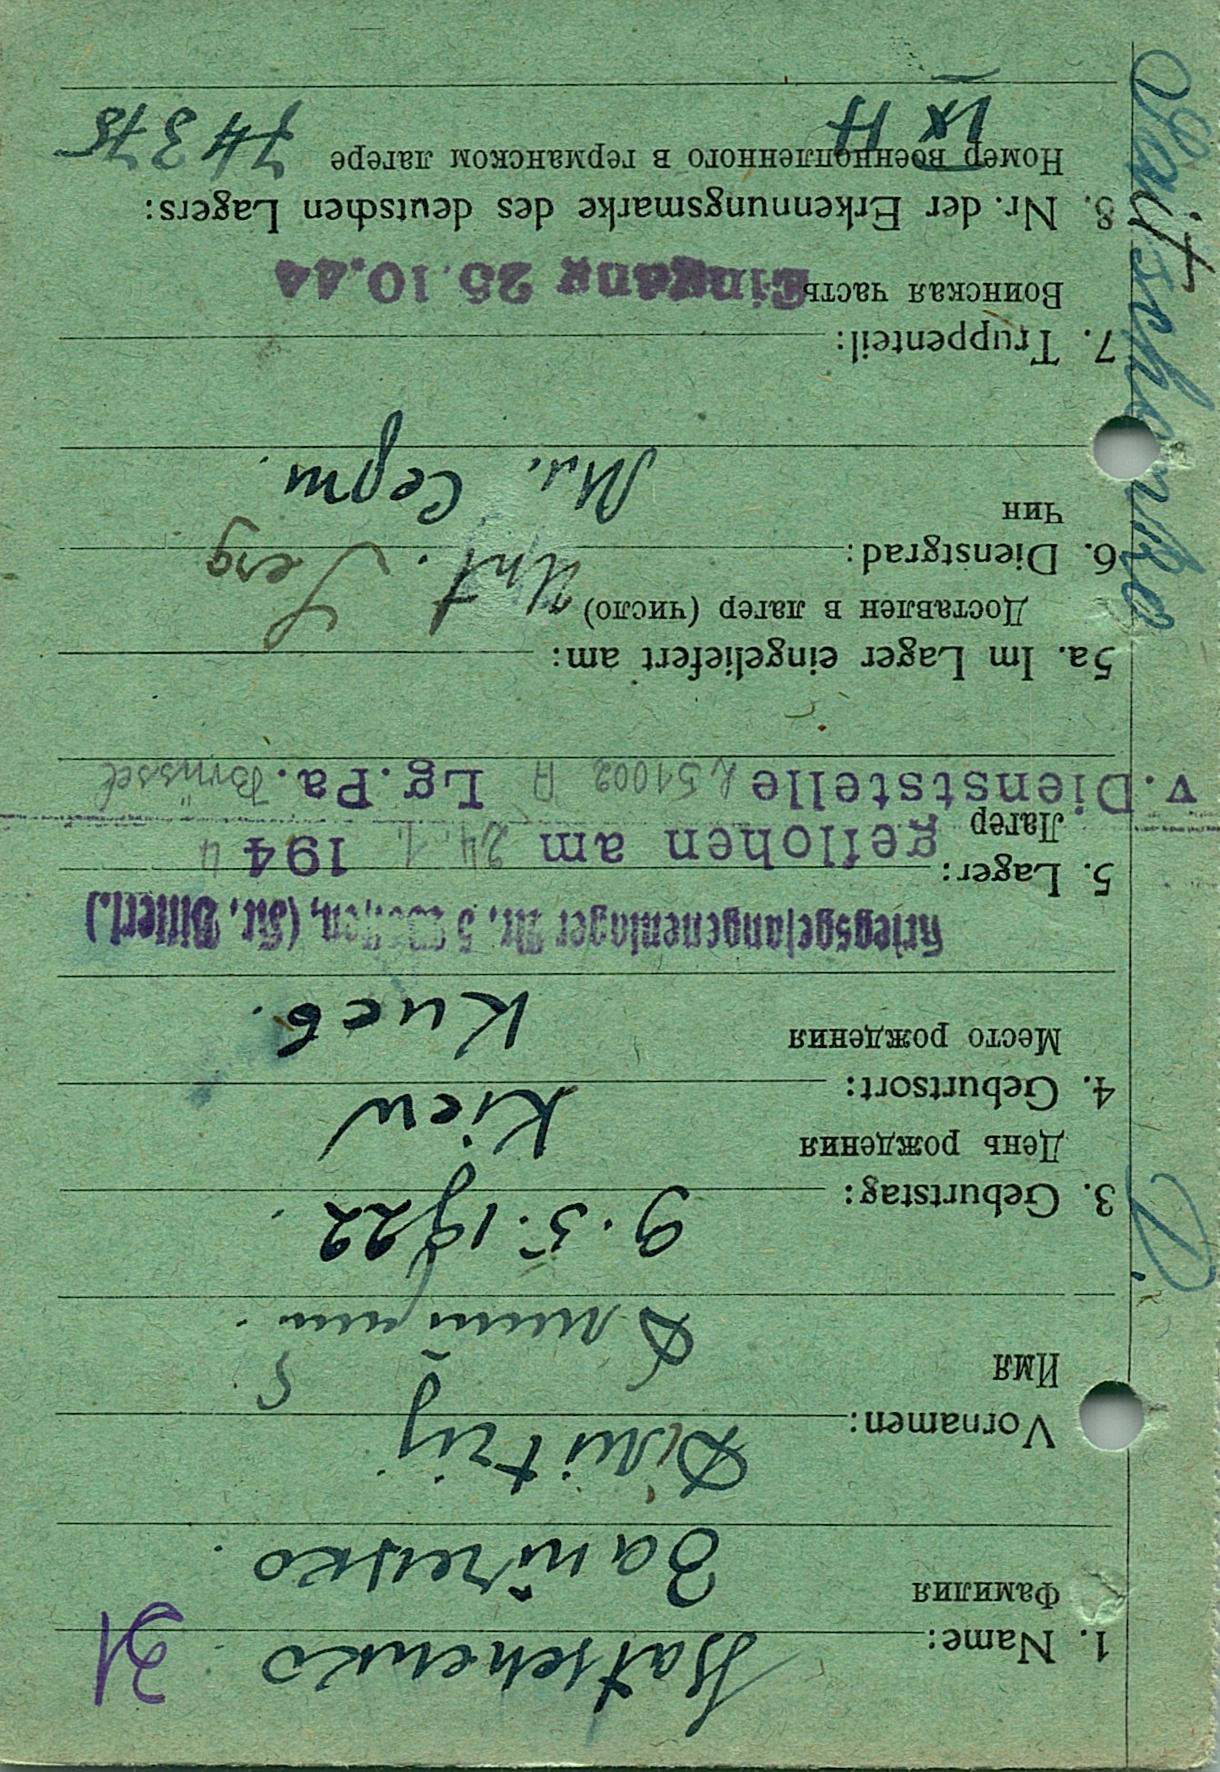 1. Name:
Фамилия
31
Vornamen:
Dimitrij
Имя
Дмитрий.
3. Geburtstag: 9.5.1922.
День рождения
4. Geburtsort: Kiew
Место рождения Киев.
Kriegsgefangenenlager Nr. 5
5. Lager:
Лагерь
geflohen am 24.1. 1944
v. Dienststelle L 51002 A Lg. Pa. Brüssel
5a. Im Lager eingeliefert am:
Доставлен в лагер (число)
6. Dienstgrad: Unt. Serg
Чин Мл. Серж.
7. Truppenteil:
Воинская часть
Eingang 25.10.44
8. Nr. der Erkennungsmarke des deutschen Lagers:
Номер военнопленного в германском лагере 74375
IX H
D.